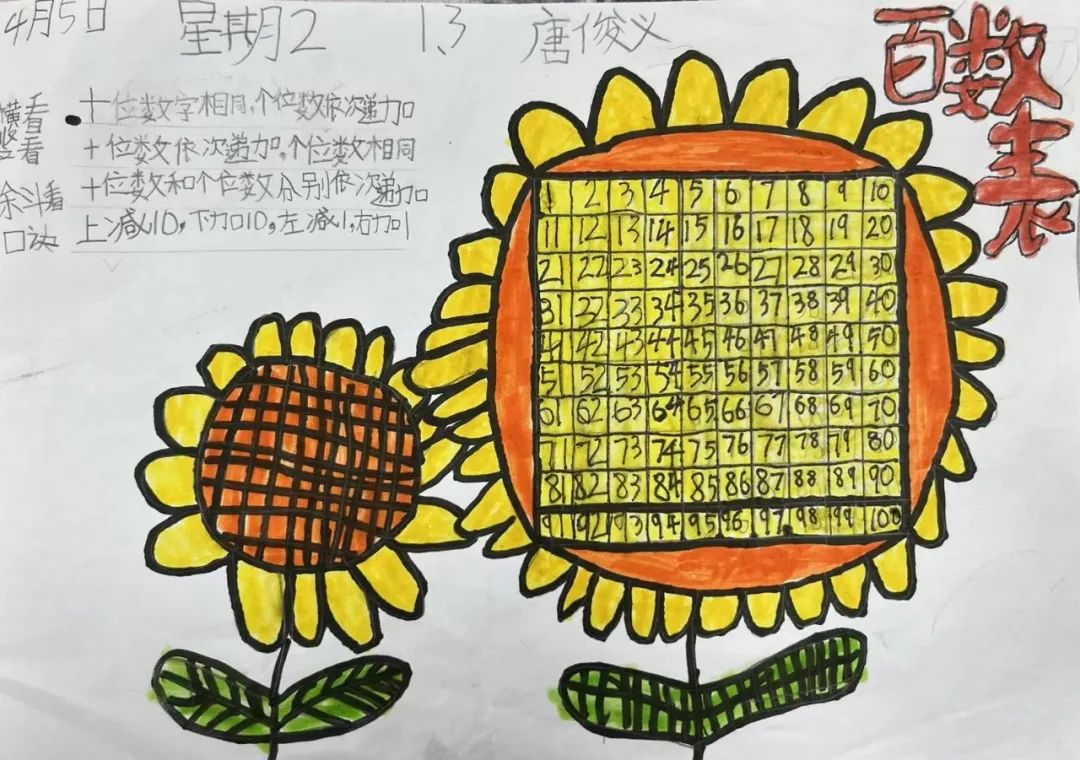 4月5日 星期2 1.3 唐俊义
百数表
横看 十位数字相同,个位数依次递加
竖看 十位数依次递加,个位数相同
余斗看 十位数和个位数分别依次递加
口诀 上减10,下加10,左减1,右加1
1 2 3 4 5 6 7 8 9 10
11 12 13 14 15 16 17 18 19 20
21 22 23 24 25 26 27 28 29 30
31 32 33 34 35 36 37 38 39 40
41 42 43 44 45 46 47 48 49 50
51 52 53 54 55 56 57 58 59 60
61 62 63 64 65 66 67 68 69 70
71 72 73 74 75 76 77 78 79 80
81 82 83 84 85 86 87 88 89 90
91 92 93 94 95 96 97 98 99 100